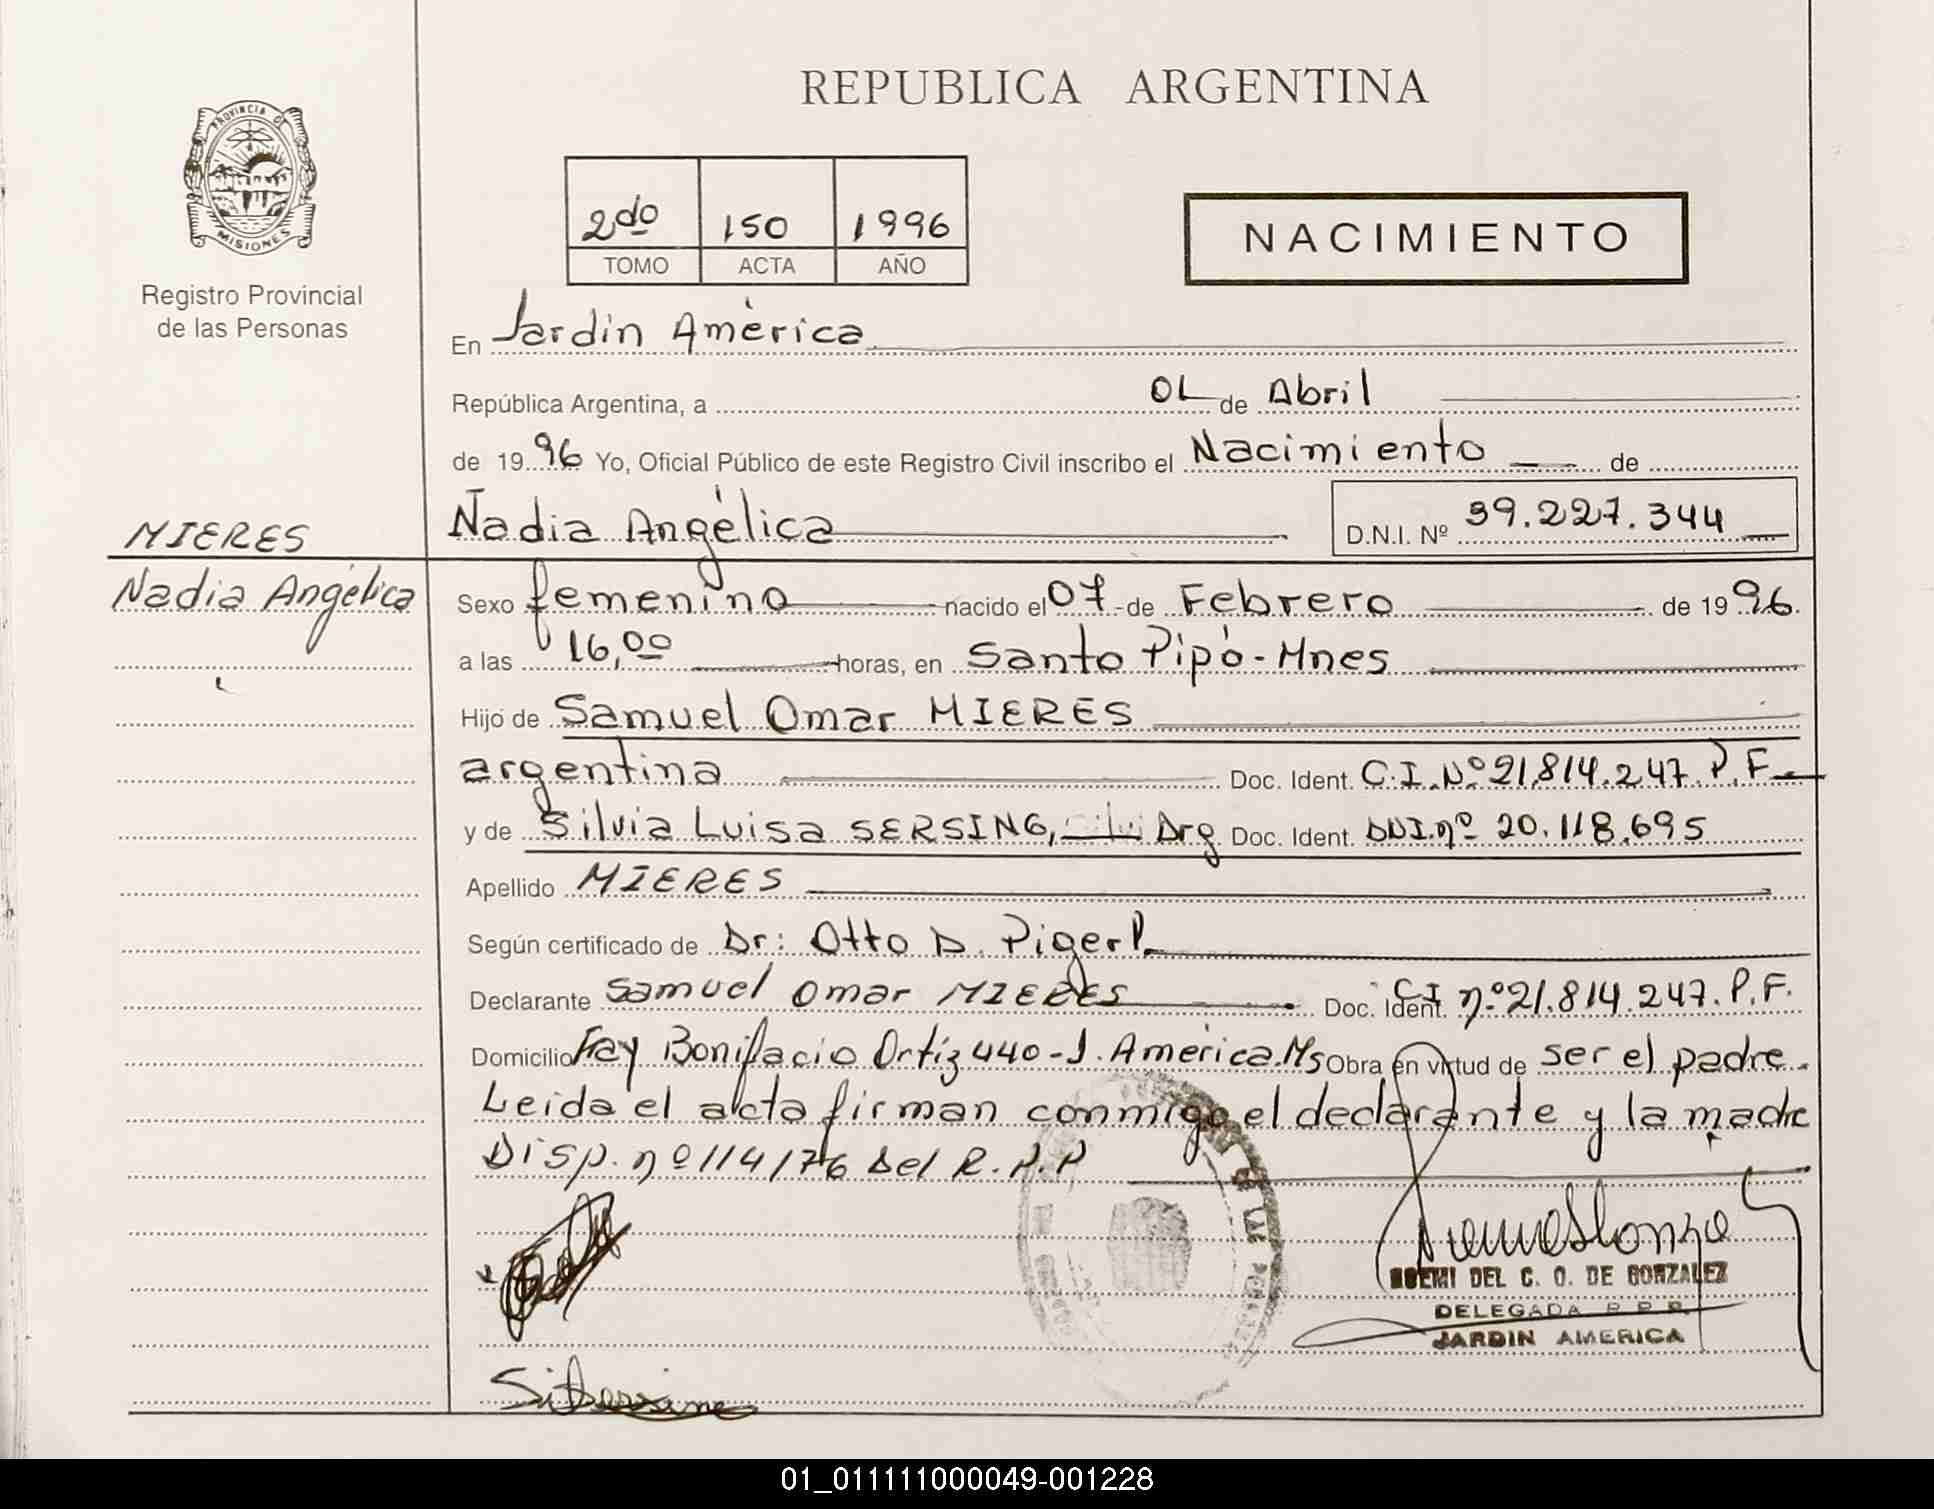 REPUBLICA ARGENTINA
PROVINCIA DE
MISIONES
Registro Provincial
de las Personas
2do 150 1996
TOMO ACTA AÑO
NACIMIENTO
En Jardín América
República Argentina, a 01 de Abril
de 1996 Yo, Oficial Público de este Registro Civil inscribo el Nacimiento de
Nadia Angélica D.N.I. Nº 39.227.344
MIERES
Nadia Angélica
Sexo femenino nacido el 07 de Febrero de 1996.
a las 16,00 horas, en Santo Pipó-Mnes
Hijo de Samuel Omar MIERES
argentina Doc. Ident. C.I. Nº 21.814.247. P.F.
y de Silvia Luisa SERSING, Arg Doc. Ident. DNI.nº 20.118.695
Apellido MIERES
Según certificado de Dr: Otto D. Pigerl
Declarante Samuel Omar MIERES Doc. Ident. CI nº 21.814.247. P.F.
Domicilio Fray Bonifacio Ortíz 440-J. América.Ms Obra en virtud de ser el padre.
Leída el acta firman conmigo el declarante y la madre
Disp. nº 114/76 del R.P.P
NOEMI DEL C. O. DE GONZALEZ
DELEGADA R.P.P.
JARDIN AMERICA
01_011111000049-001228